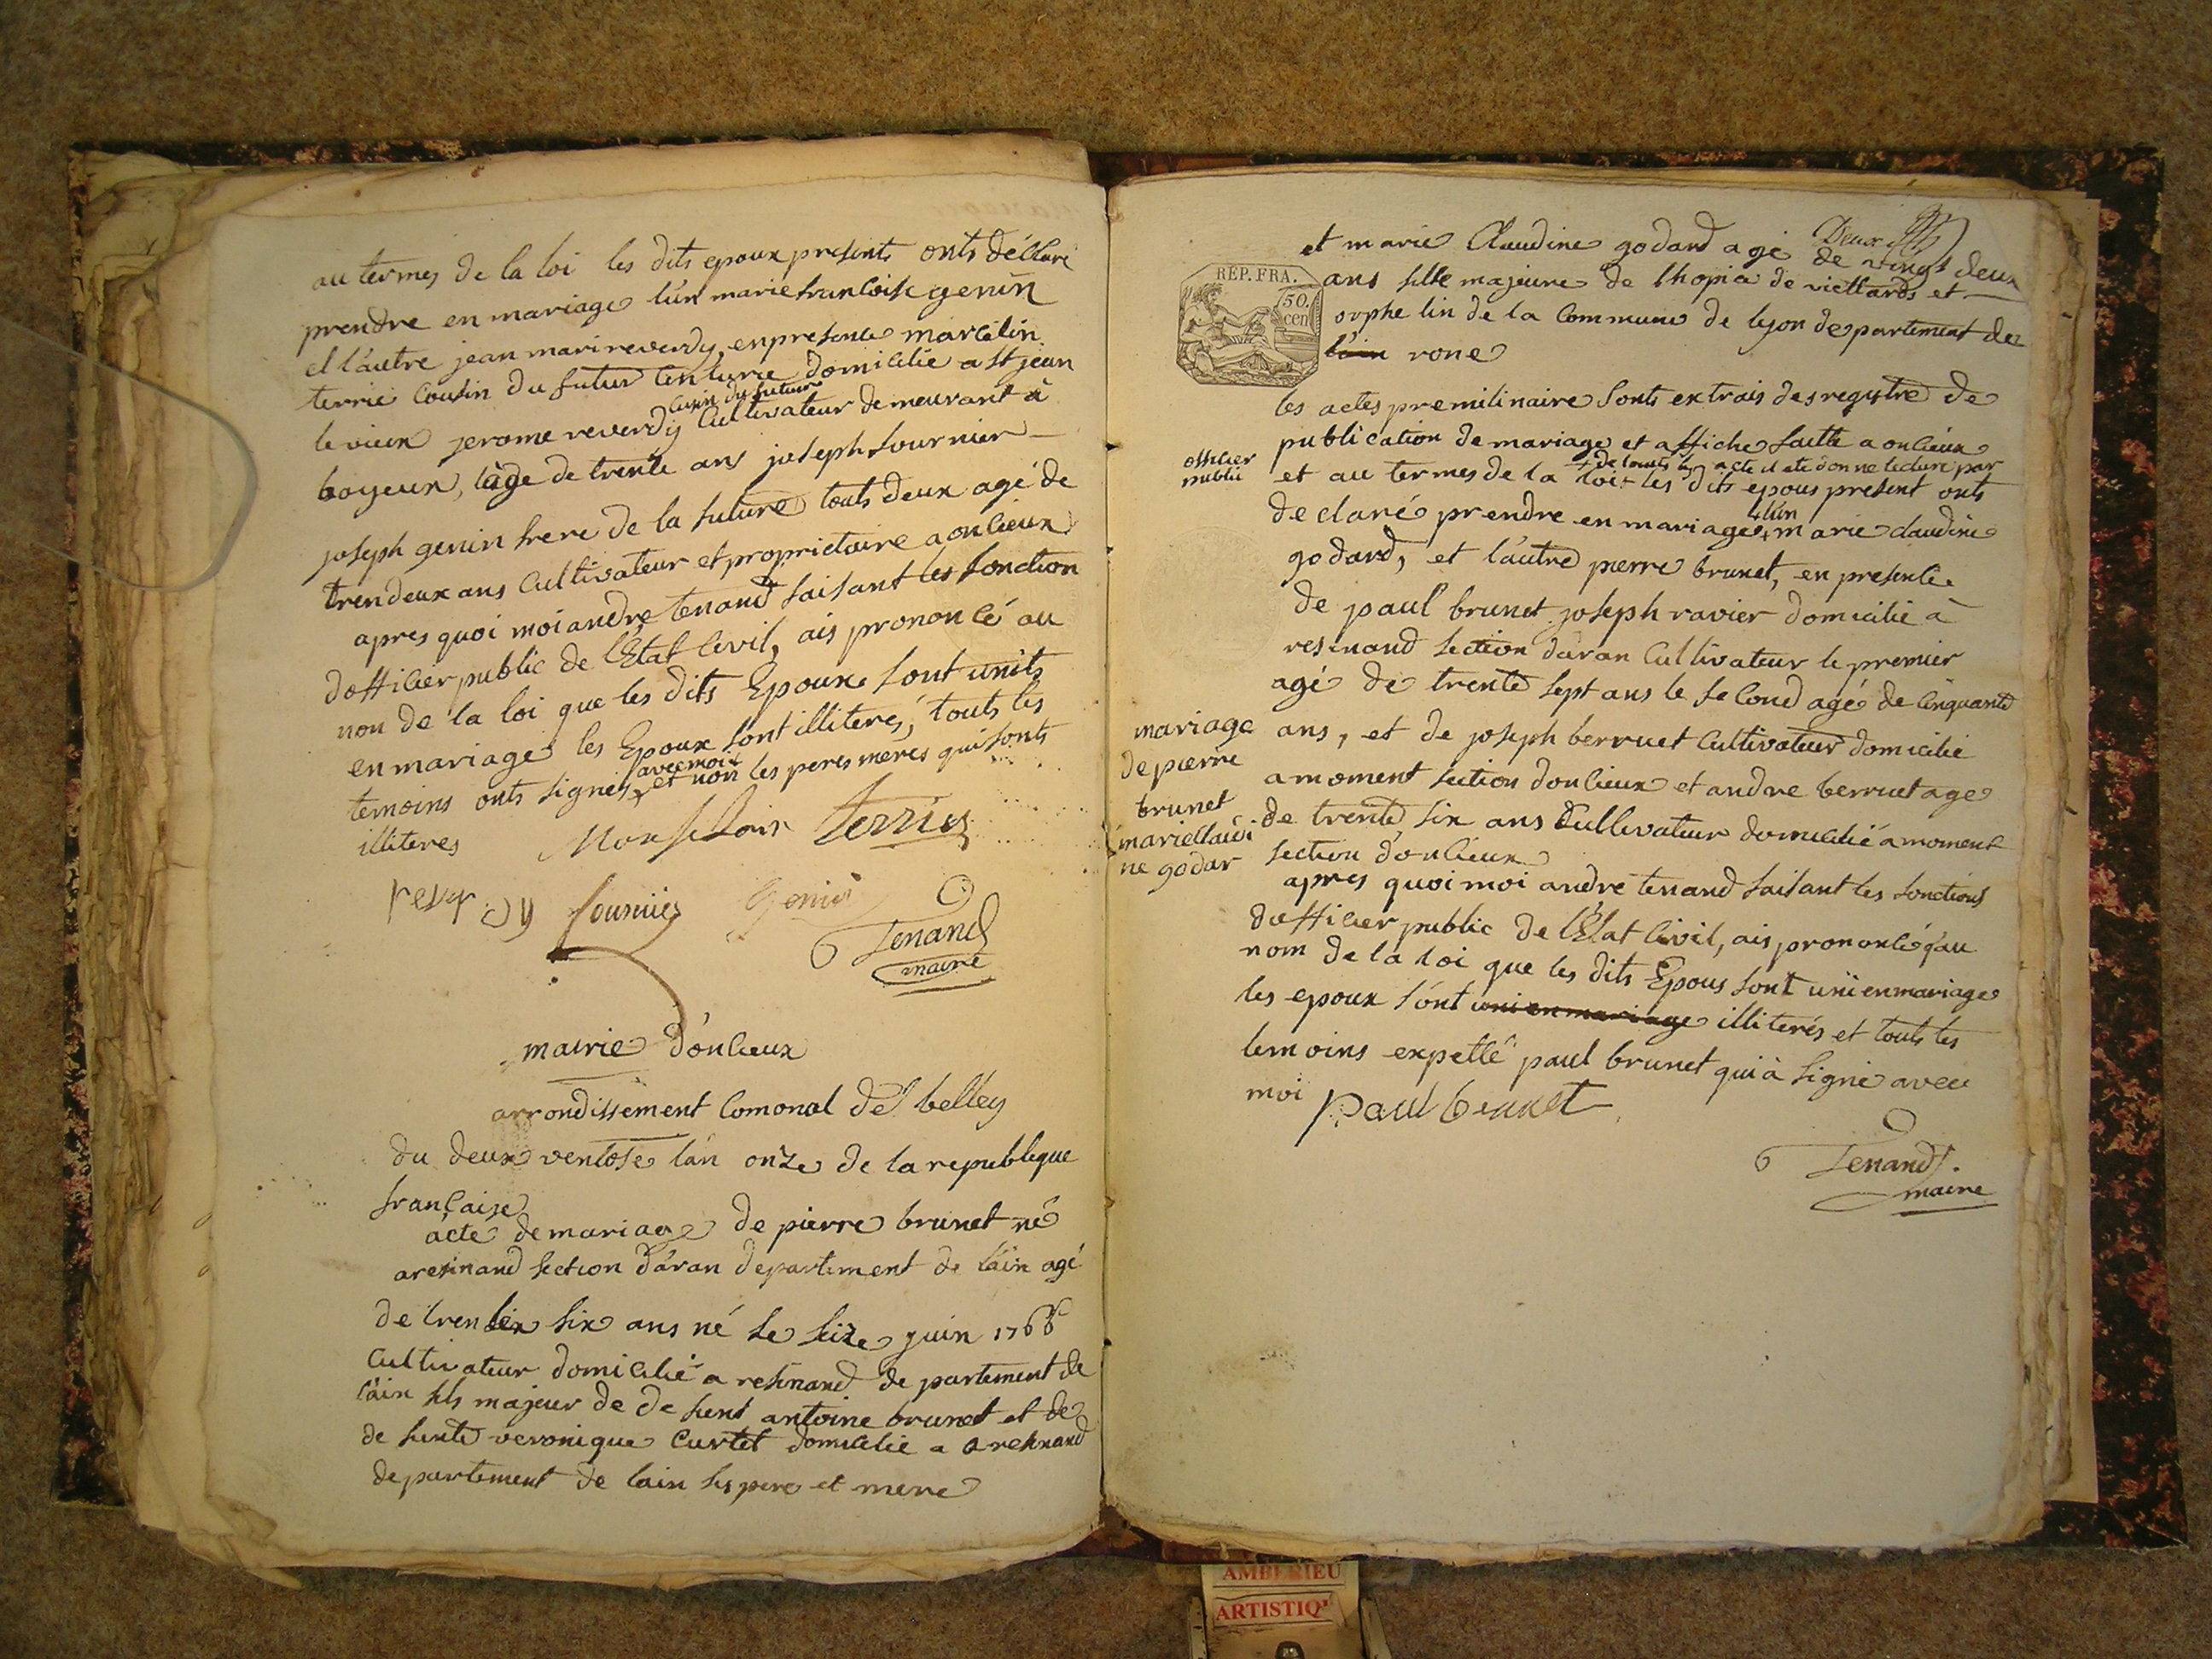 au termes de la loi les dits epoux presents onts déclaré
prendre en mariage l'un marie francoise genin
et l'autre jean mari reverdy, en presence marcelin
terrie cousin du futur domicilie a st jean
le vieux jerome reverdy cusin du futur cultivateur demeurant à
boyeux, l'âge de trente ans joseph fournier
joseph genin frere de la future touts deux agé de
trendeux ans cultivateur et proprietaire a oncieux
apres quoi moi andre tenand faisant les fonction
d'officier public de l'Etat civil, ais prononcé au
non de la loi que les dits Epoux sont units
en mariage les Epoux sont illiterés, touts les
temoins onts signés avec moi et non les peres meres qui sonts
illiteres terrier
reverdy fournier genin
Tenand
maire
mairie d'oncieux
arrondissement comonal de belley
du deux ventose l'an onze de la republique
française
acte de mariage de pierre brunet né
a resinand section d'aran departement de l'ain agé
de trente six ans né le seize juin 1766
cultivateur domicilié a resinand departement de
l'ain fils majeur de de funt antoine brunet et de
de funte veronique curtet domicilie a aresinand
departement de l'ain ses pere et mere
Deux
et marie claudine godard agé de vingt deux
RÉP. FRA.
50.
cen
ans fille majeure de lhopia de viellards et
orphe lin de la commune de lyon departement de
l'ain rone
les actes premilinaire sonts extrais des registre de
publication de mariage et affiche faitte a oncieux
officier
public
+ de touts les acte il ete donne lecture par
et au termes de la loi + les dits epous present onts
declaré prendre en mariage + l'un marie claudine
godard, et l'autre pierre brunet, en presence
de paul brunet joseph ravier domicilié à
resinand section d'aran cultivateur le premier
agé de trente sept ans le second agé de cinquante
mariage
de pierre
brunet
marie claudi
ne godar
ans, et de joseph berruet cultivateur domicilié
a moment section d'oncieux et andre berruet age
de trente six ans cultivateur domicilié a moment
section d'oncieux
apres quoi moi andre tenand faisant les fonctions
d'officier public de l'Etat civil, ais prononcé q'au
nom de la loi que les dits Epous sont uni en mariage
les epoux sont uni en mariage illiterés et touts les
temoins expetté paul brunet qui à signé avec
moi paul brunet
Tenand.
maire
AMBERIEU
ARTISTIQ